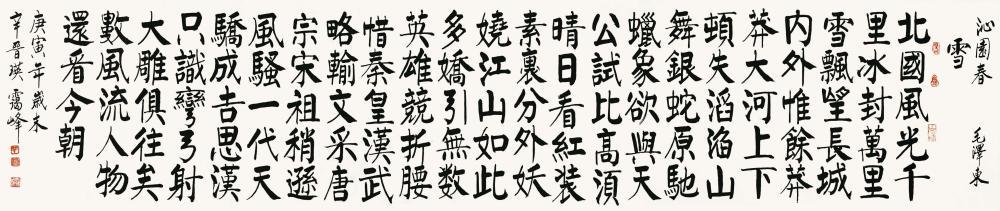 沁園春
雪
毛澤東
北國風光千
里冰封萬里
雪飄望長城
内外惟餘莽
莽大河上下
頓失滔滔山
舞銀蛇原馳
蠟象欲與天
公試比高須
晴日看紅裝
素裹分外妖
嬈江山如此
多嬌引無數
英雄競折腰
惜秦皇漢武
略輸文采唐
宗宋祖稍遜
風騷一代天
驕成吉思漢
只識彎弓射
大雕俱往矣
數風流人物
還看今朝
庚寅年歲末